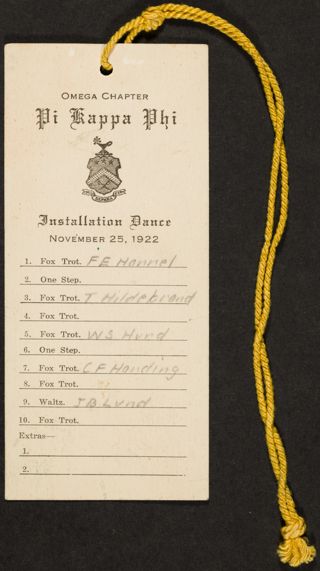 OMEGA CHAPTER
Pi Kappa Phi
Installation Dance
NOVEMBER 25, 1922
1. Fox Trot. F E Hannel
2. One Step.
3. Fox Trot. T Hildebrand
4. Fox Trot.
5. Fox Trot. W S Hurd
6. One Step.
7. Fox Trot. C F Harding
8. Fox Trot.
9. Waltz. J B Lund
10. Fox Trot.
Extras—
1.
2.